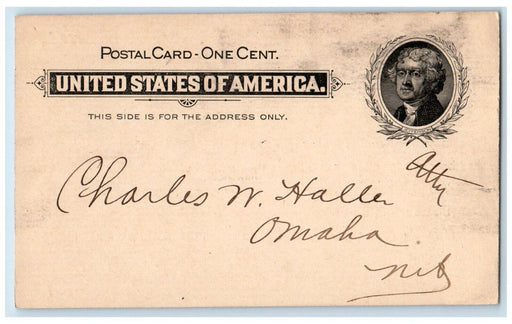 POSTAL CARD - ONE CENT.
UNITED STATES OF AMERICA.
THIS SIDE IS FOR THE ADDRESS ONLY.
Atty
Charles W. Haller
Omaha
Neb